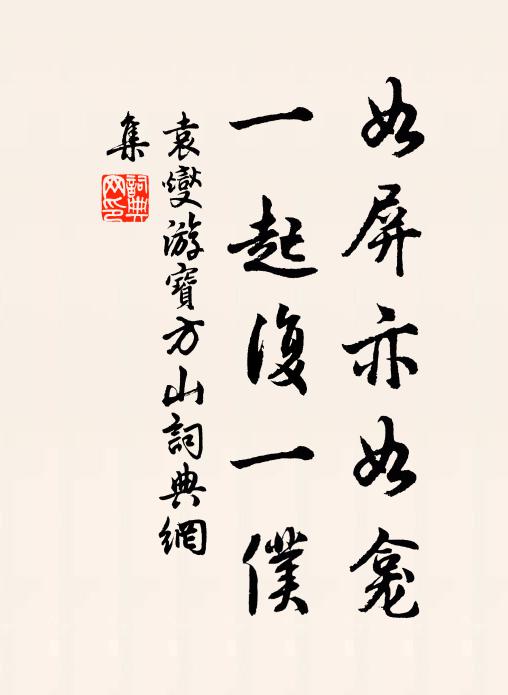 如屏亦如龛
一起復一僕
袁燮游寶方山詞典網
集
詞典
網印